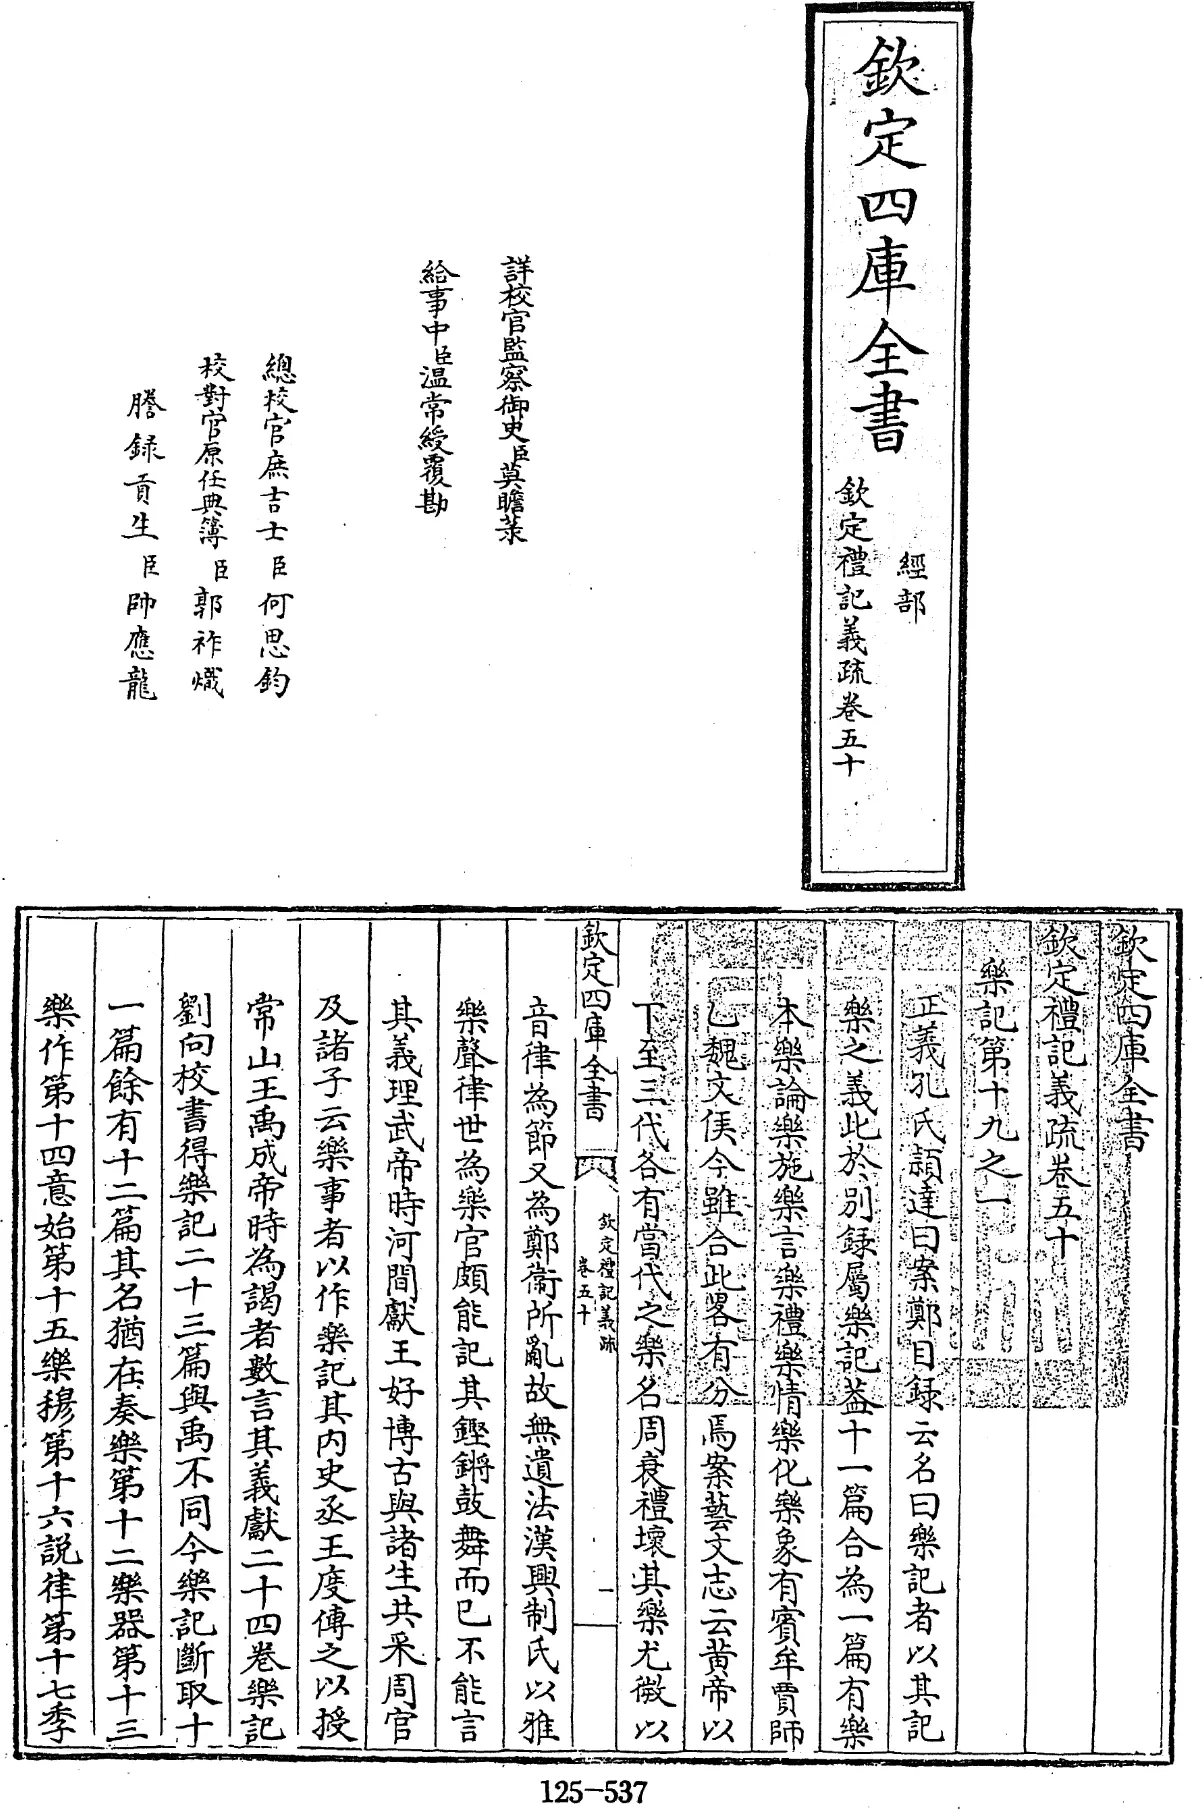 欽定四庫全書
經部
欽定禮記義疏卷五十
詳校官監察御史臣莫瞻菉
給事中臣温常綬覆勘
總校官庶吉士臣何思鈞
校對官原任典簿臣郭祚熾
謄録貢生臣帥應龍
欽定四庫全書
欽定禮記義疏卷五十
樂記第十九之一
正義孔氏頴達曰案鄭目録云名曰樂記者以其記
樂之義此於别録屬樂記葢十一篇合為一篇有樂
本樂論樂施樂言樂禮樂情樂化樂象有賓牟賈師
乙魏文侯今雖合此畧有分焉案藝文志云黄帝以
下至三代各有當代之樂名周衰禮壞其樂尤微以
欽定四庫全書
欽定禮記義疏
卷五十
一
音律為節又為鄭衞所亂故無遺法漢興制氏以雅
樂聲律世為樂官頗能記其鏗鏘鼓舞而已不能言
其義理武帝時河間獻王好博古與諸生共采周官
及諸子云樂事者以作樂記其内史丞王度傳之以授
常山王禹成帝時為謁者數言其義獻二十四卷樂記
劉向校書得樂記二十三篇與禹不同今樂記斷取十
一篇餘有十二篇其名猶在奏樂第十二樂器第十三
樂作第十四意始第十五樂穆第十六説律第十七季
125-537